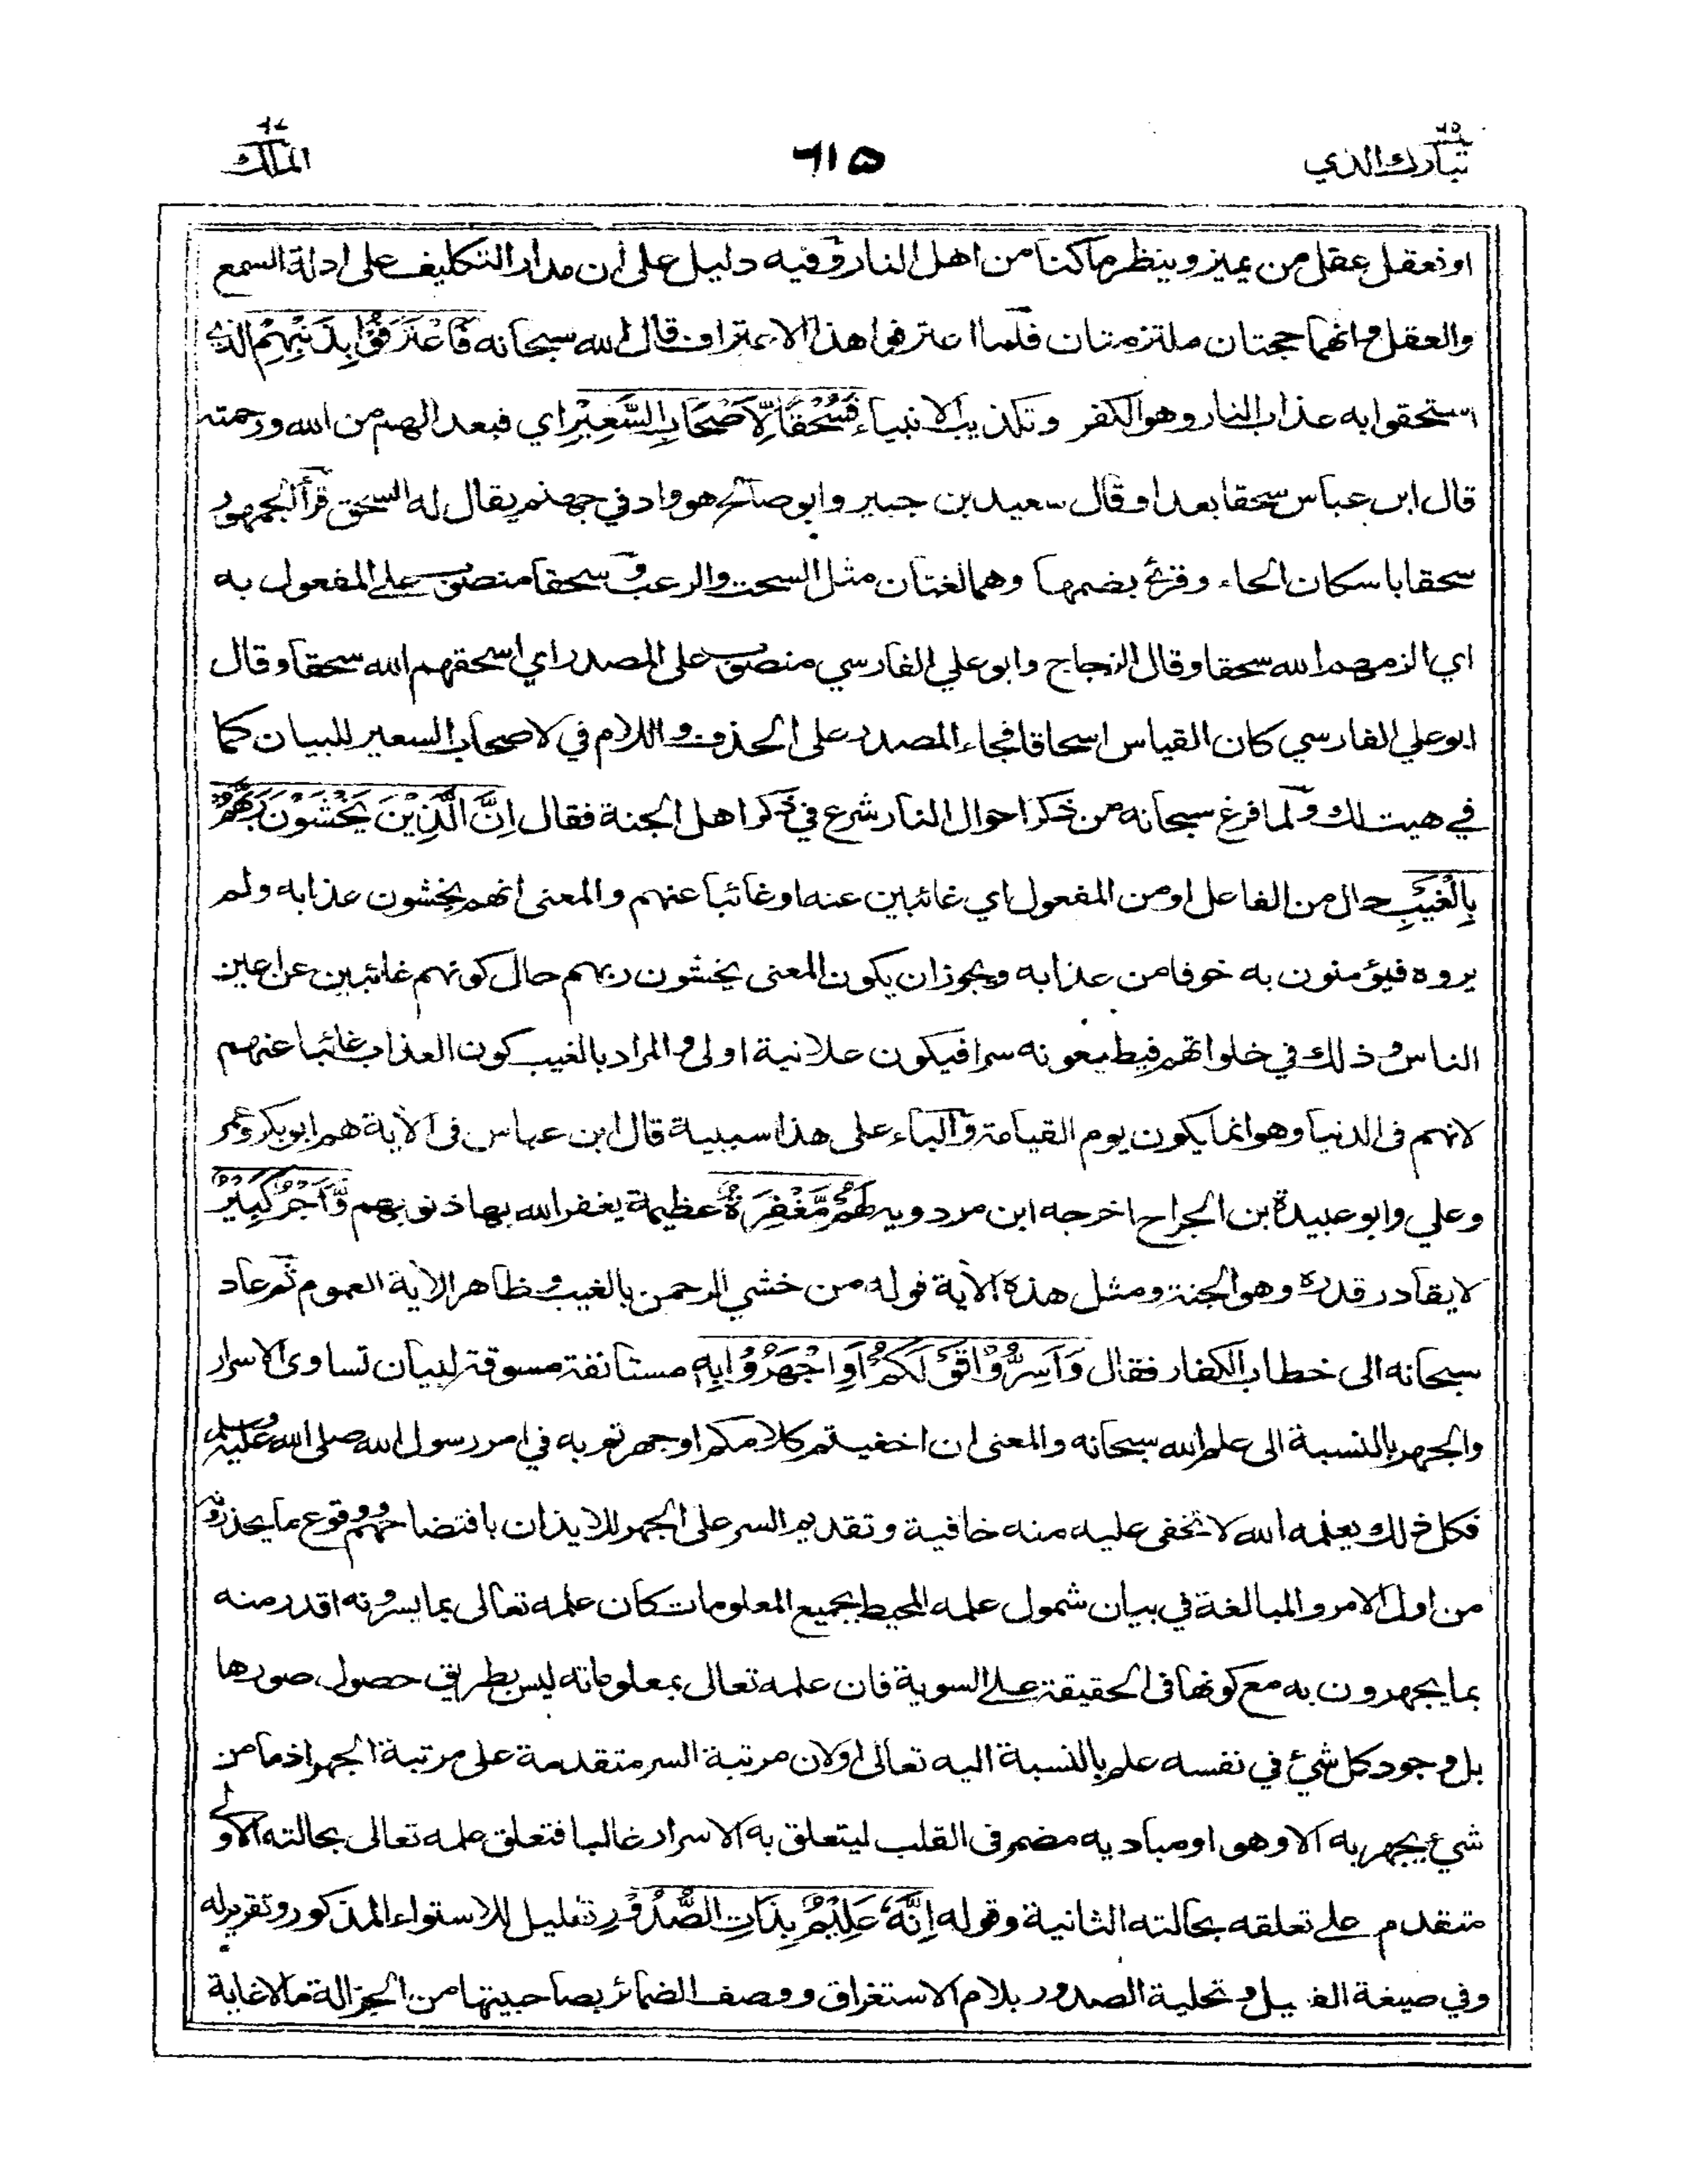 تبارك الذي ٦١٥ الملك
او نعقل عقل من يميز وينظر ما كنا من اهل النار وفيه دليل على ان مدار التكليف على ادلة السمع
والعقل وانهما حجتان ملتزمتان فلما اعترفوا هذا الاعتراف قال الله سبحانه فَاعْتَرَفُوْا بِذَنْبِهِمْ الذي
استحقوا به عذاب النار وهو الكفر وتكذيب الانبياء فَسُحْقًا لِّاَصْحَابِ السَّعِيْرِ اي فبعدا لهم من الله ورحمته
قال ابن عباس سحقا بعدا وقال سعيد بن جبير وابو صالح هو واد في جهنم يقال له السحق قرأ الجمهور
سحقا باسكان الحاء وقرئ بضمها وهما لغتان مثل السحت والرعب وسحقا منصوب على المفعول به
اي الزمهم الله سحقا وقال الزجاج وابو علي الفارسي منصوب على المصدر اي اسحقهم الله سحقا وقال
ابو علي الفارسي كان القياس اسحاقا فجاء المصدر على الحذف واللام في لاصحاب السعير للبيان كما
في هيت لك ولما فرغ سبحانه من ذكر احوال النار شرع في ذكر اهل الجنة فقال اِنَّ الَّذِيْنَ يَخْشَوْنَ رَبَّهُمْ
بِالْغَيْبِ حال من الفاعل او من المفعول اي غائبين عنه او غائبا عنهم والمعنى انهم يخشون عذابه ولم
يروه فيؤمنون به خوفا من عذابه ويجوز ان يكون المعنى يخشون ربهم حال كونهم غائبين عن اعين
الناس وذلك في خلواتهم فيطيعونه سرا فيكون علانية اولى والمراد بالغيب كون العذاب غائبا عنهم
لانهم فى الدنيا وهو انما يكون يوم القيامة والباء على هذا سببية قال ابن عباس فى الآية هم ابو بكر وعمر
وعلي وابو عبيدة بن الجراح اخرجه ابن مردويه لَهُمْ مَّغْفِرَةٌ عظيمة يغفر الله بها ذنوبهم وَّاَجْرٌ كَبِيْرٌ
لا يقادر قدره وهو الجنة ومثل هذه الآية قوله من خشي الرحمن بالغيب وظاهر الآية العموم ثم عاد
سبحانه الى خطاب الكفار فقال وَاَسِرُّوْا قَوْلَكُمْ اَوِ اجْهَرُوْا بِهٖ مستانفة مسوقة لبيان تساوى الاسرار
والجهر بالنسبة الى علم الله سبحانه والمعنى ان اخفيتم كلامكم او جهرتم به في امر رسول الله صلى الله عليه وسلم
فكل ذلك يعلمه الله لا تخفى عليه منه خافية وتقديم السر على الجهر للايذان بافتضاحهم ووقوع ما يحذرونه
من اول الامر والمبالغة في بيان شمول علمه المحيط بجميع المعلومات كان علمه تعالى بما يسرونه اقدر منه
بما يجهرون به مع كونها فى الحقيقة على السوية فان علمه تعالى بمعلوماته ليس بطريق حصول صورها
بل وجود كل شيئ في نفسه علم بالنسبة اليه تعالى او لان مرتبة السر متقدمة على مرتبة الجهر اذ ما من
شيء يجهر به الا وهو او مباديه مضمر فى القلب ليتعلق به الاسرار غالبا فتعلق علمه تعالى بحالته الاولى
متقدم على تعلقه بحالته الثانية وقوله اِنَّهٗ عَلِيْمٌۢ بِذَاتِ الصُّدُوْرِ تعليل للاستواء المذكور وتقرير له
وفي صيغة الفعيل وتحلية الصدور بلام الاستغراق ووصف الضمائر بصاحبيتها من الجزالة ما لا غاية